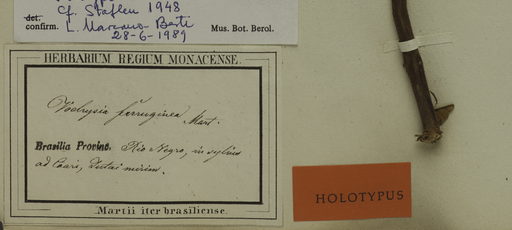 Cf. Stafleu 1948
det.
confirm. L. Marcano-Berti
28-6-1989 Mus. Bot. Berol.
HERBARIUM REGIUM MONACENSE.
Vochysia ferruginea Mart.
Brasilia Provinc. Rio Negro, in sylvis
ad Coari,
Martii iter brasiliense.
HOLOTYPUS